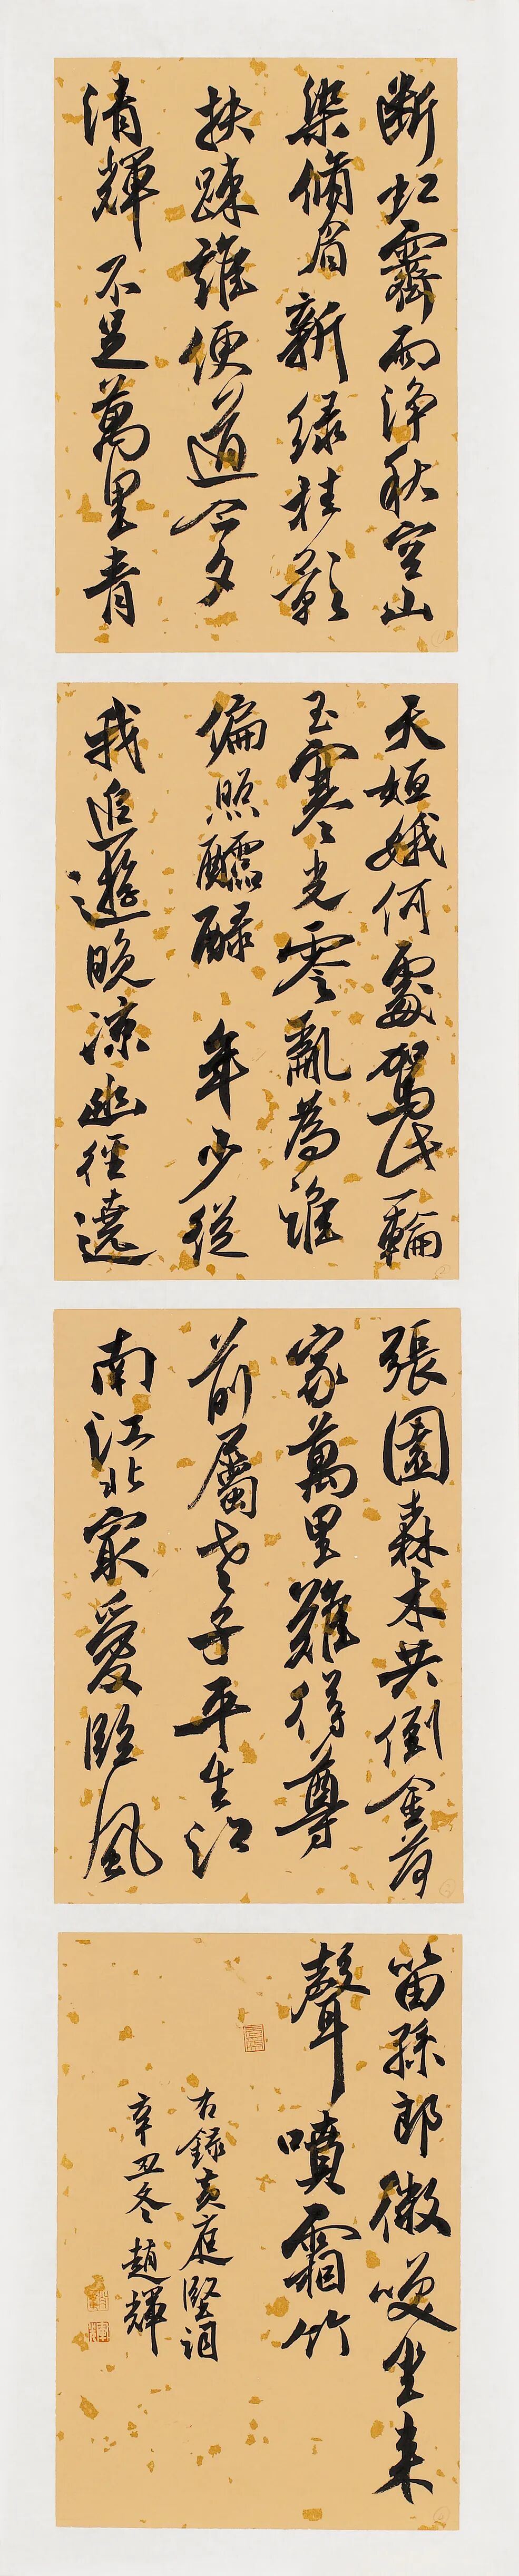 斷虹霽雨淨秋空山
染脩眉新綠桂影
扶疎誰便道今夕
清輝不足萬里青
天姮娥何處駕此一輪
玉寒光零亂為誰
偏照醽醁年少從
我追遊晚涼幽徑遶
張園森木共倒金荷
家萬里難得尊
前屬老子平生江
南江北最愛臨風
笛孫郎微笑坐來
聲噴霜竹
右錄黃庭堅詞
辛丑冬趙輝